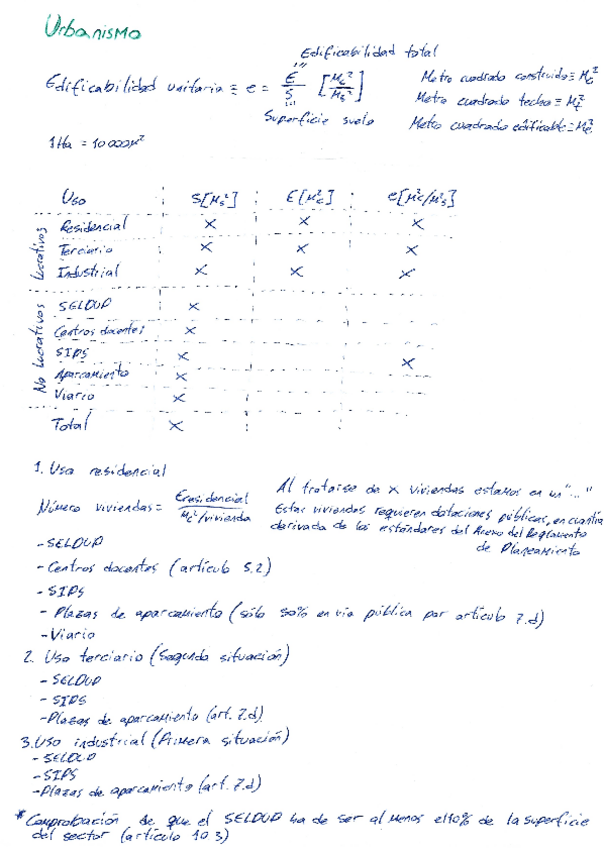 Urbanismo
Edificabilidad total
Edificabilidad unitaria ≡ e = E/S [M²c/M²s]
Metro cuadrado construido ≡ M²c
Metro cuadrado techo = M²t
Metro cuadrado edificable = M²e
Superficie suelo
1Ha = 10000M²
Uso S[M²s] E[M²c] e[M²c/M²s]
Lucrativos
Residencial X X X
Terciario X X X
Industrial X X X
No Lucrativos
SELDUP X
Centros docentes X
SIPS X X
Aparcamiento X
Viario X
Total X
1. Uso residencial
Número viviendas = Eresidencial / M²c/vivienda
Al tratarse de X viviendas estamos en un "..."
Estas viviendas requieren dotaciones públicas, en cuantía
derivada de los estándares del Anexo del Reglamento
de Planeamiento
-SELDUP
-Centros docentes (artículo 5.2)
-SIPS
-Plazas de aparcamiento (sólo 50% en vía pública por artículo 7.d)
-Viario
2. Uso terciario (Segunda situación)
-SELDUP
-SIPS
-Plazas de aparcamiento (art. 7.d)
3. Uso industrial (Primera situación)
-SELDUP
-SIPS
-Plazas de aparcamiento (art. 7.d)
* Comprobación de que el SELDUP ha de ser al menos el 10% de la superficie
del sector (artículo 103)